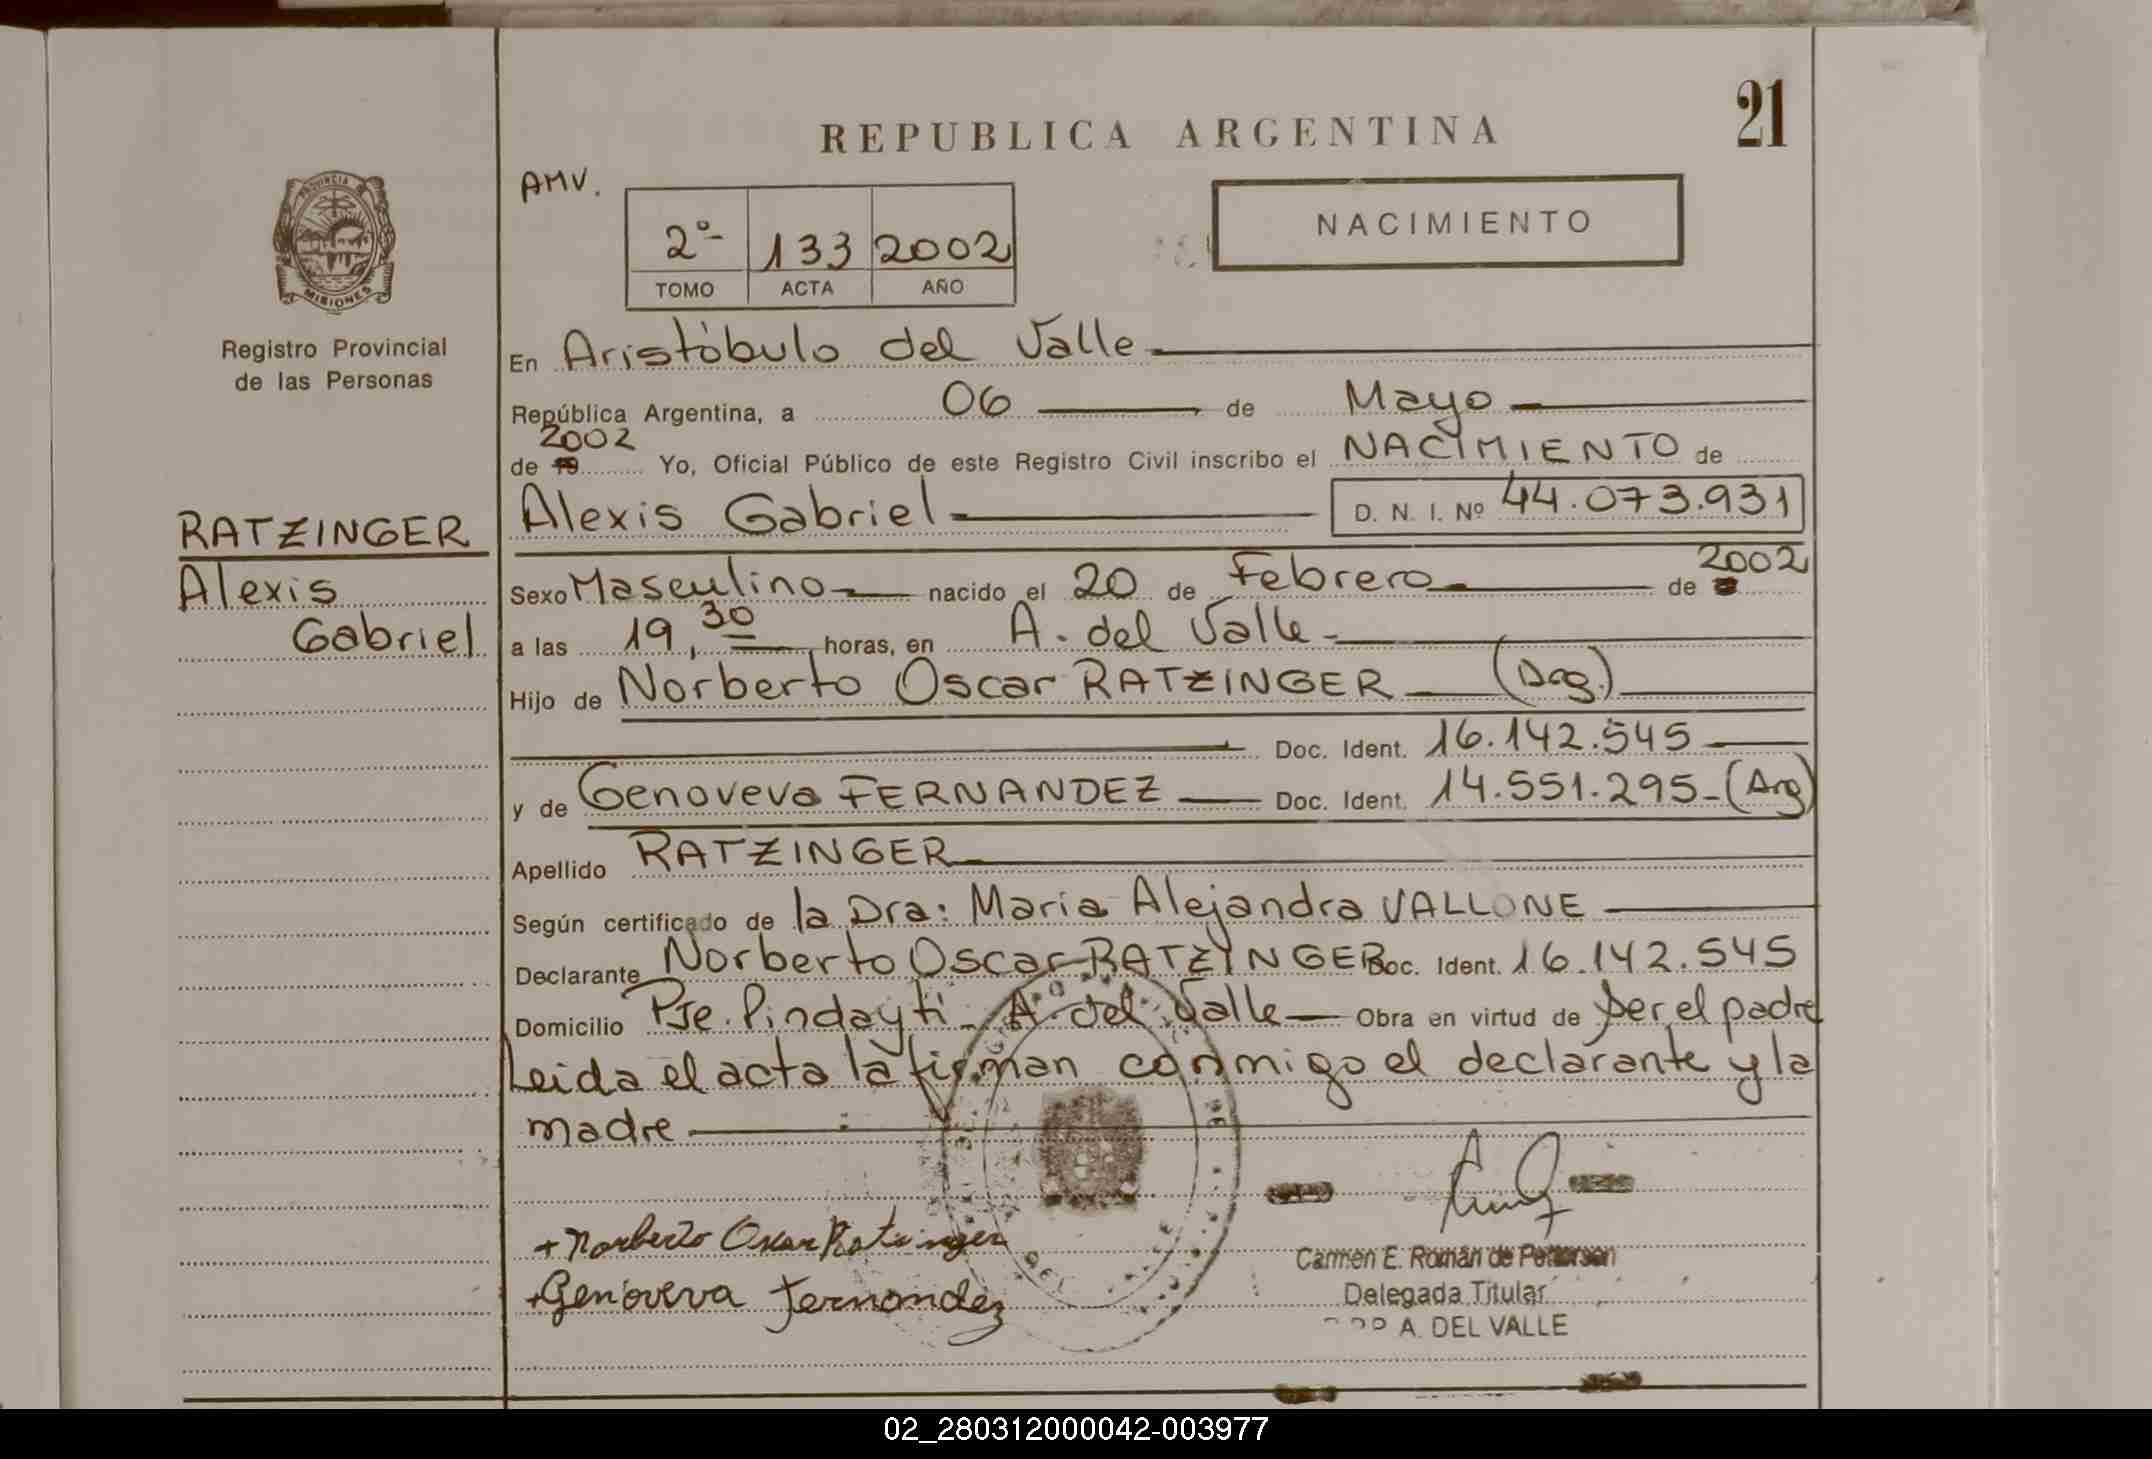 21
REPUBLICA ARGENTINA
AMV.
NACIMIENTO
2º 133 2002
TOMO ACTA AÑO
PROVINCIA
MISIONES
Registro Provincial
de las Personas
RATZINGER
Alexis
Gabriel
En Aristóbulo del Valle
República Argentina, a 06 de Mayo
2002
de 19 Yo, Oficial Público de este Registro Civil inscribo el NACIMIENTO de
Alexis Gabriel D. N. I. Nº 44.073.931
Sexo Masculino nacido el 20 de Febrero de 2002
a las 19,30 horas, en A. del Valle
Hijo de Norberto Oscar RATZINGER (Arg.)
Doc. Ident. 16.142.545
y de Genoveva FERNANDEZ Doc. Ident. 14.551.295 (Arg)
Apellido RATZINGER
Según certificado de la Dra: Maria Alejandra VALLONE
Declarante Norberto Oscar RATZINGER Doc. Ident. 16.142.545
Domicilio Pje. Pindayti - A. del Valle Obra en virtud de ser el padre
Leida el acta la firman conmigo el declarante y la
madre
+ Norberto Oscar Ratzinger
+ Genoveva Fernandez
Carmen E. Román de
Delegada Titular
A. DEL VALLE
02_280312000042-003977